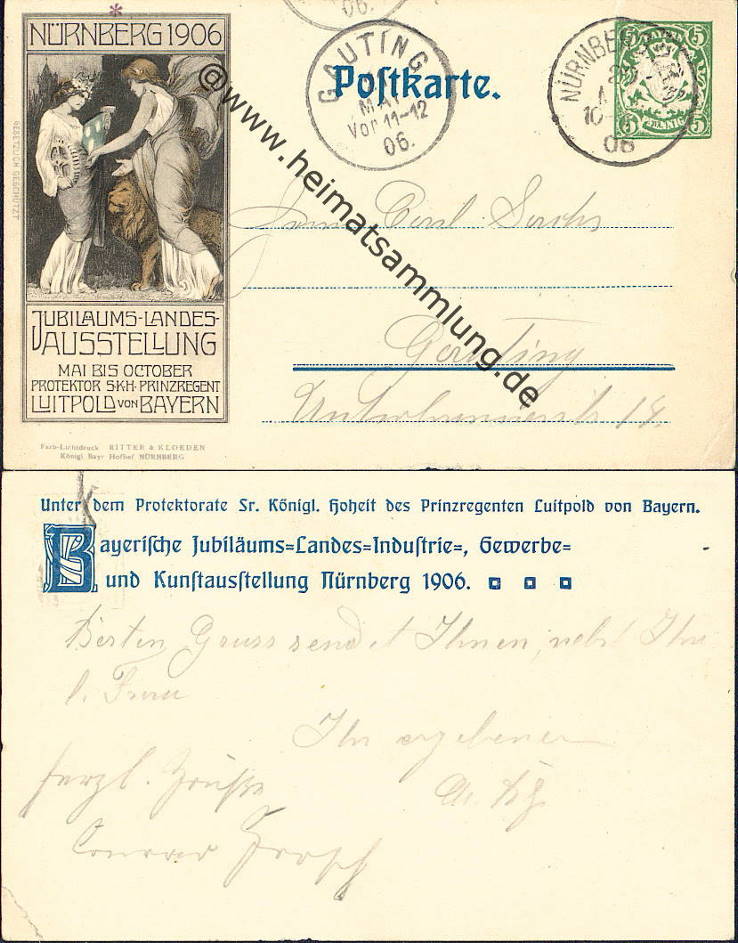 NÜRNBERG 1906
JUBILÄUMS-LANDES-
AUSSTELLUNG
MAI BIS OCTOBER
PROTEKTOR S.K.H. PRINZREGENT
LUITPOLD VON BAYERN
GESETZLICH GESCHÜTZT
Farb-Lichtdruck RITTER & KLOEDEN
Königl. Bayr Hoflief. NÜRNBERG
06.
GAUTING
MAI
Vor 11-12
06.
Poſtkarte.
NÜRNBERG
10
06
5 5
5 PFENNIG 5
@www.heimatsammlung.de
Gauting
14.
Unter dem Protektorate Sr. Königl. Hoheit des Prinzregenten Luitpold von Bayern.
Bayeriſche Jubiläums=Landes=Induſtrie=, Gewerbe=
und Kunſtausſtellung Nürnberg 1906.
Besten Gruss sendet Ihnen, nebst Ihr
l. Frau
Ihr ergebener
herzl. Grüße
Conrad